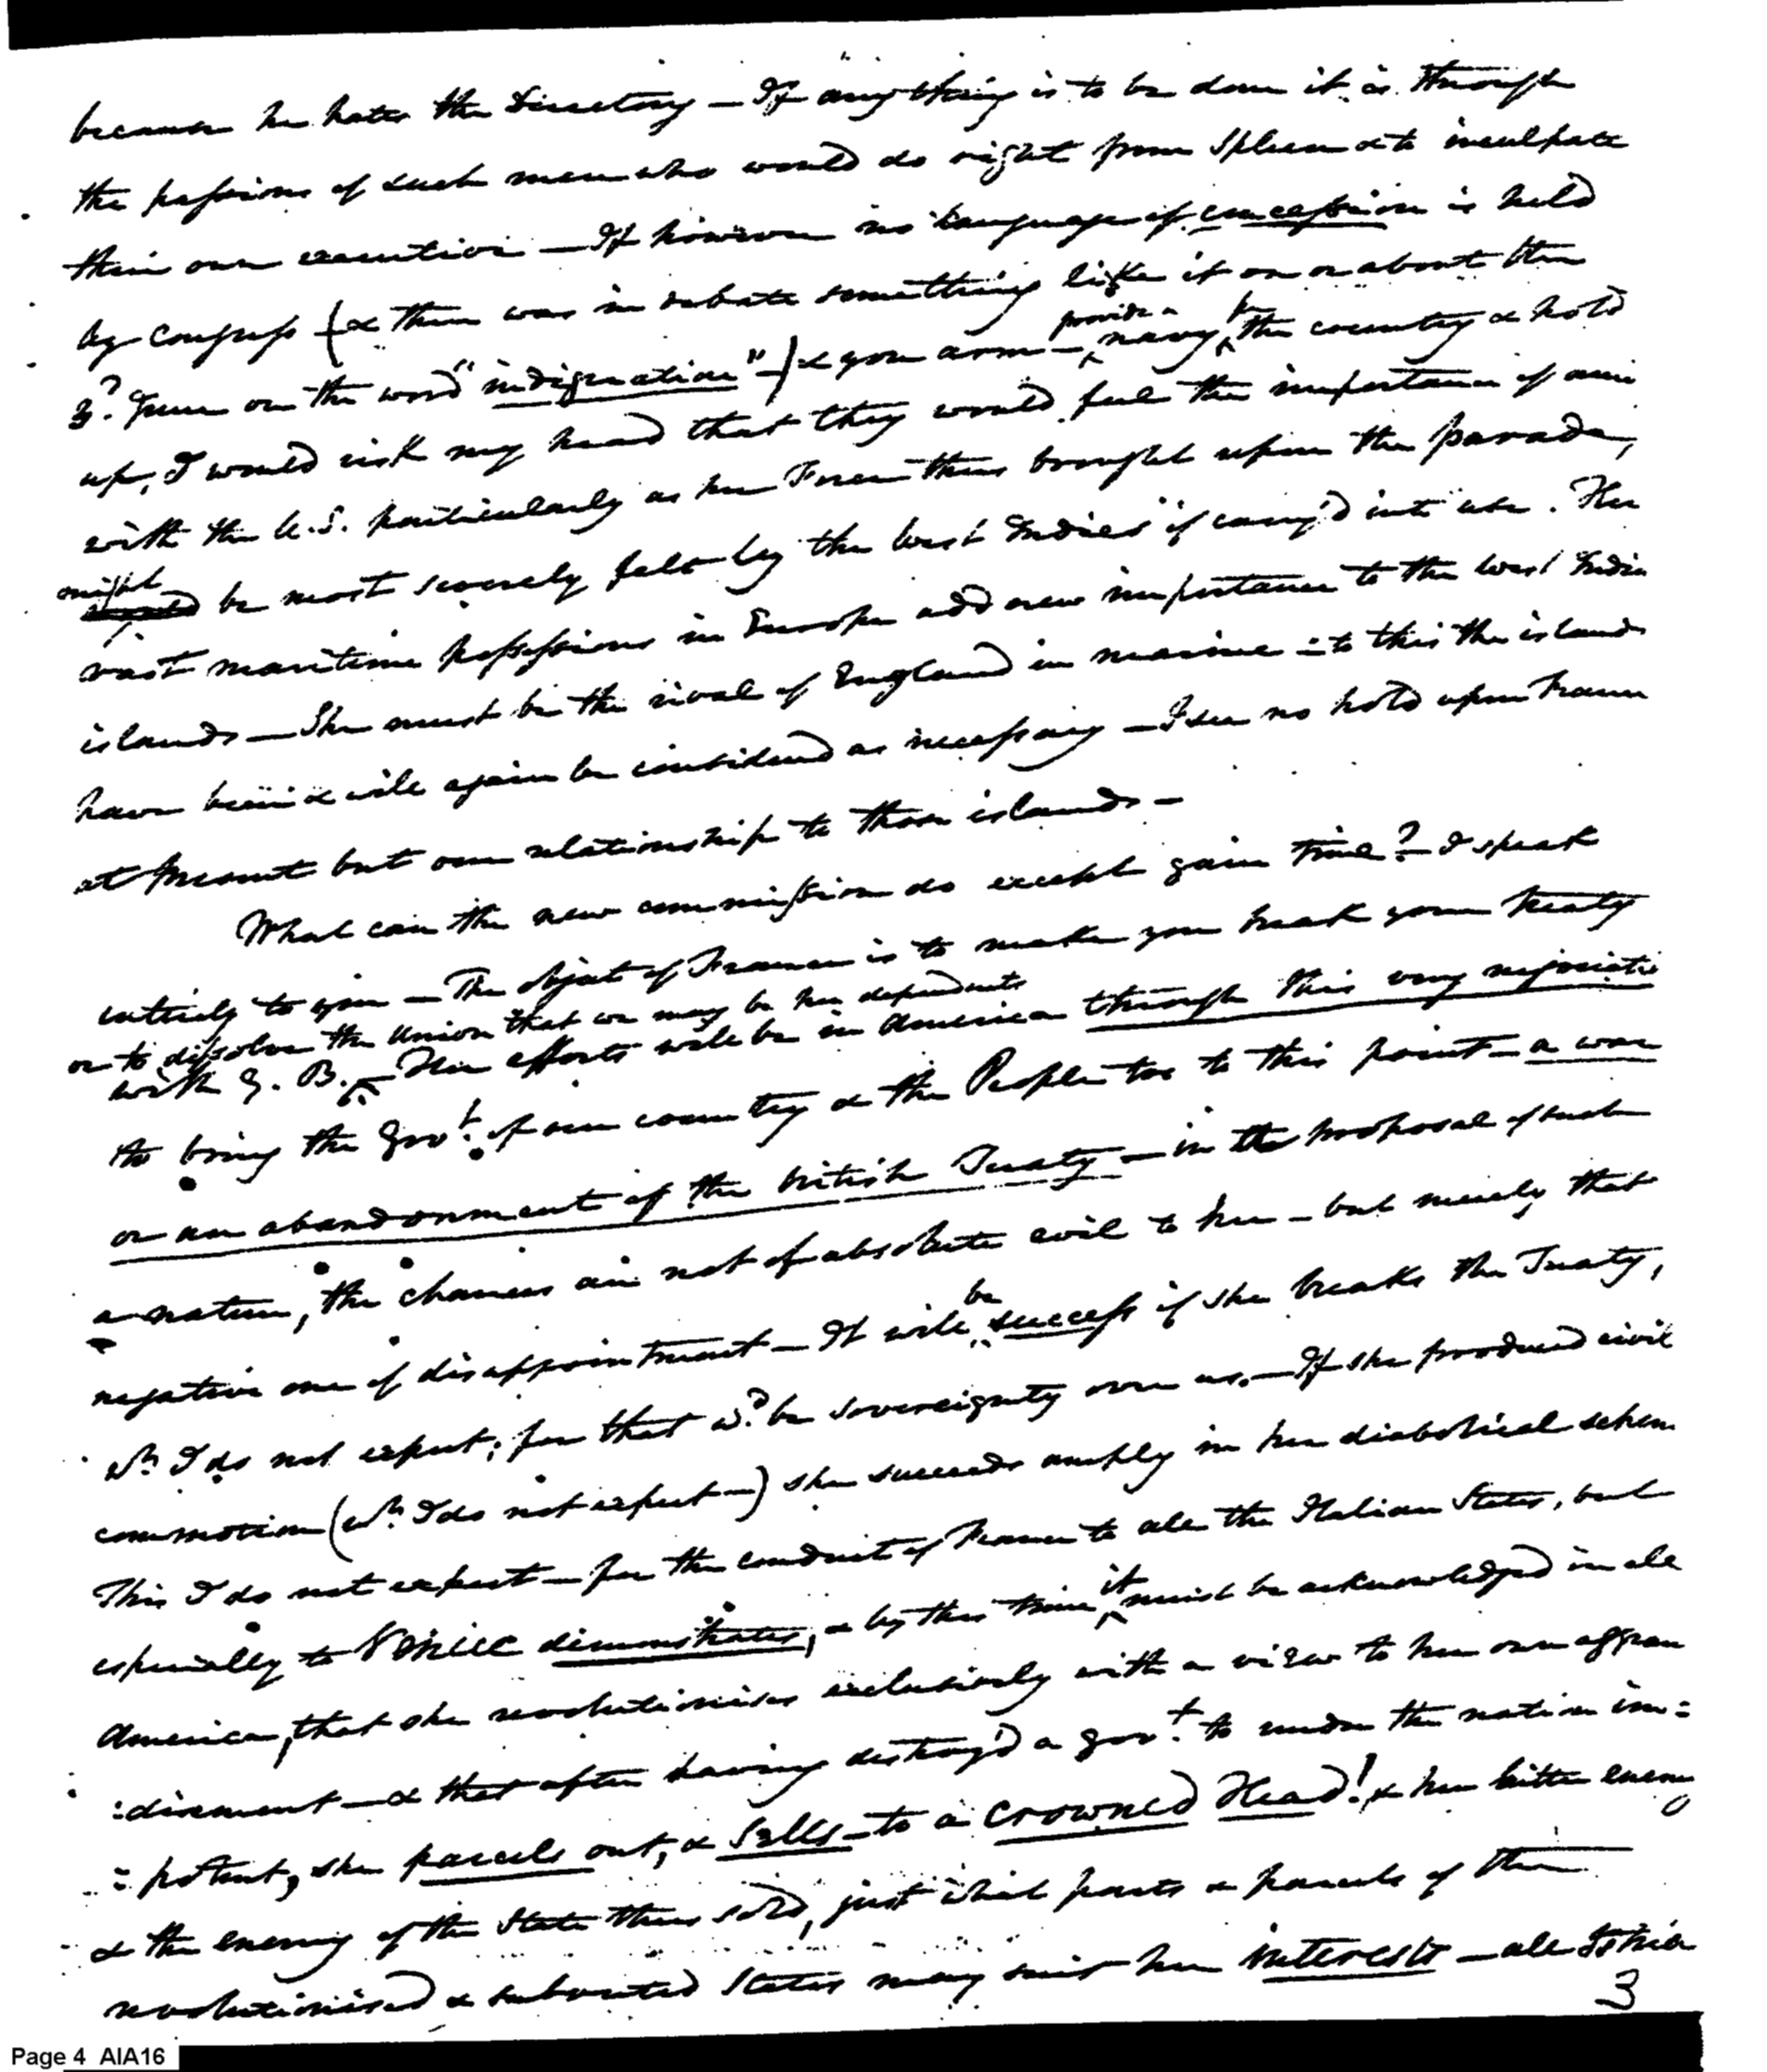 because he hates the Directory — If any thing is to be done it is through
the passions of such men who would do right from spleen & to inculpate
their own execution — If however no language of concession is held
by Congress (& there was in debate something like it on or about the
3.d June on the word "indignation" —) & you arm — provide a navy, for the country & hold
up, I would risk my head that they would feel the importance of
with the U.S. particularly as her Foren thus brought upon the parade,
might be most severely felt by the West Indies if carry'd into use. Her
vast maritime possessions in Europe add new importance to the West India
islands — She must be the rival of England in marine — to this the islands
have been & will again be considered as necessary — I see no hold upon France
at present but our relationship to those islands —
What can the new commission do except gain time? — I speak
entirely to you — The object of France is to make you break your Treaty
or to dissolve the Union that we may be her dependents
with G. B. — Her efforts will be in America through this very negociatio
to bring the Gov.t of our country & the People too to this point — a war
or an abandonment of the British Treaty — in the proposal of such
a nature, the chances are not of absolute evil to her — but merely that
negative one of disappointment — It will be success if she breaks the Treaty,
w.h I do not expect; for that w.d be sovereignty over us. — If she produced civil
commotion (w.h I do not expect —) she succeeds amply in her diabolical schem
This I do not expect — for the conduct of France to all the Italian States, but
especially to Venice demonstrates, & by this time it must be acknowledged in all
America, that she revolutionises exclusively with a view to her own aggran
:disement — & that after having destroy'd a gov.t to render the nation im:
:potent, she parcels out, & sells — to a Crowned Head! & her bitter enemy
& the enemy of the State thus sold, just what parts & parcels of the
revolutionised & subverted States may suit her interests — all this
3
Page 4 AIA16